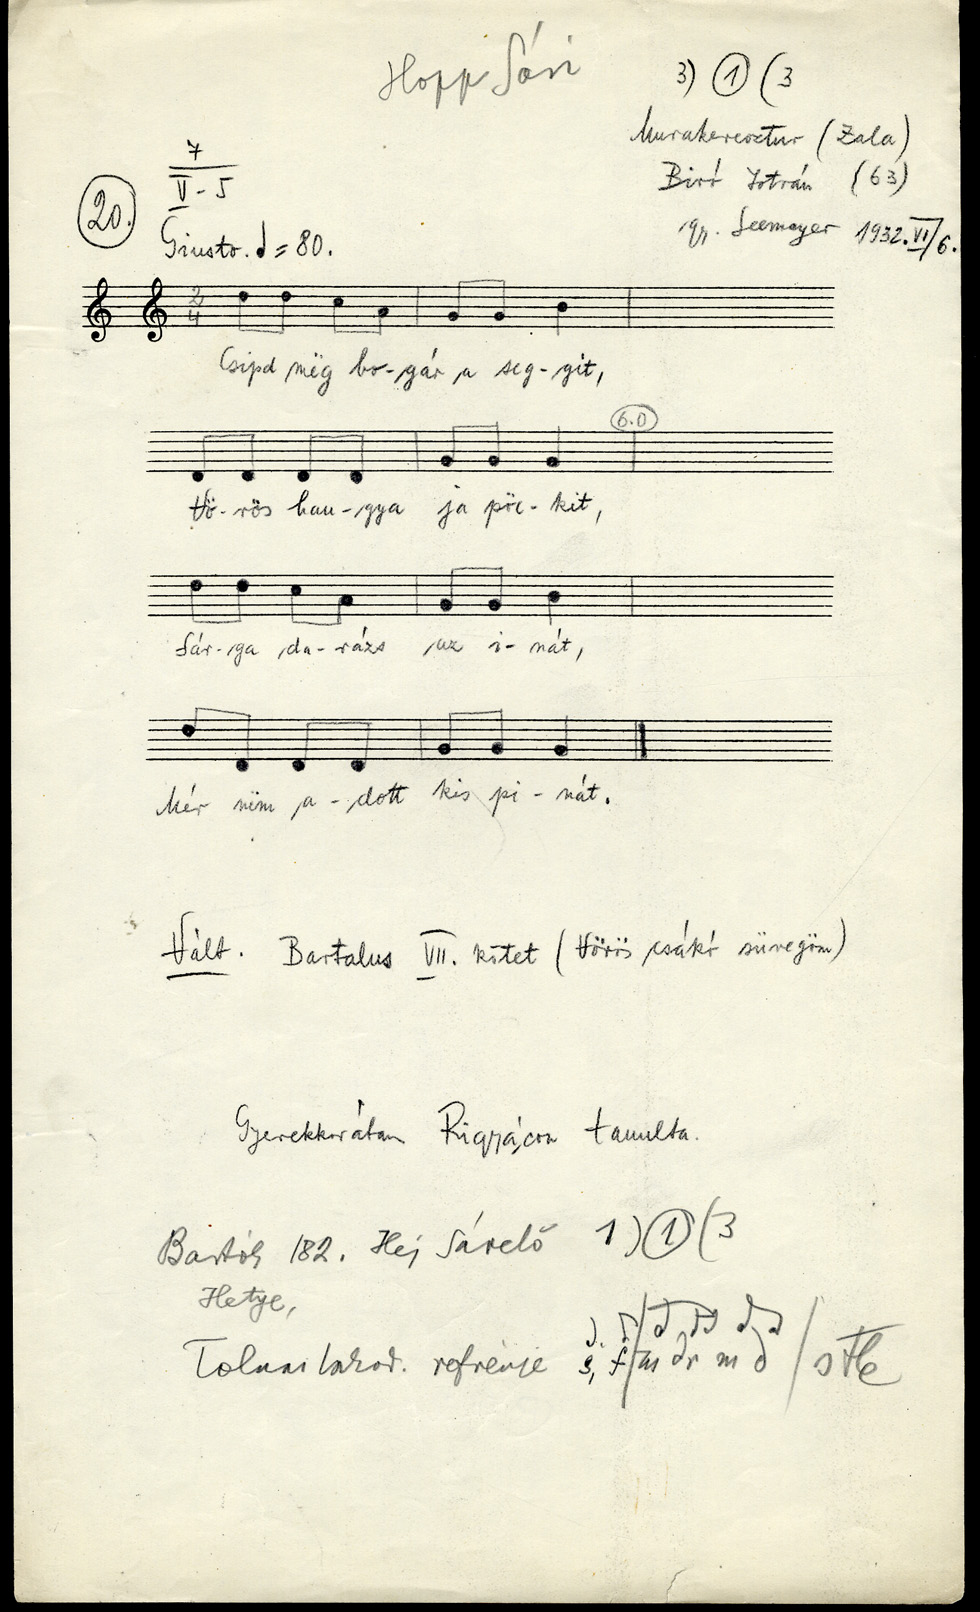 Hopp Sári
3) ① (3
Murakeresztur (Zala)
Biró István (63)
gy. Seemayer 1932.VI/6.
7
V-5
20.
Giusto. d = 80.
2
4
Csipd mëg bo-gár a seg-git,
6.0
Vö-rös han-gya ja pöc-kit,
Sár-ga da-rázs az i-nát,
Mér nëm a-dott kis pi-nát.
Vált. Bartalus VII. kötet (Vörös csákó süvegöm)
Gyerekkorában Rigyácon tanulta.
Bartók 182. Hej Sárelő 1) ① (3
Hetye,
Tolnai lakod. refrénje s, f m dr m d / stb